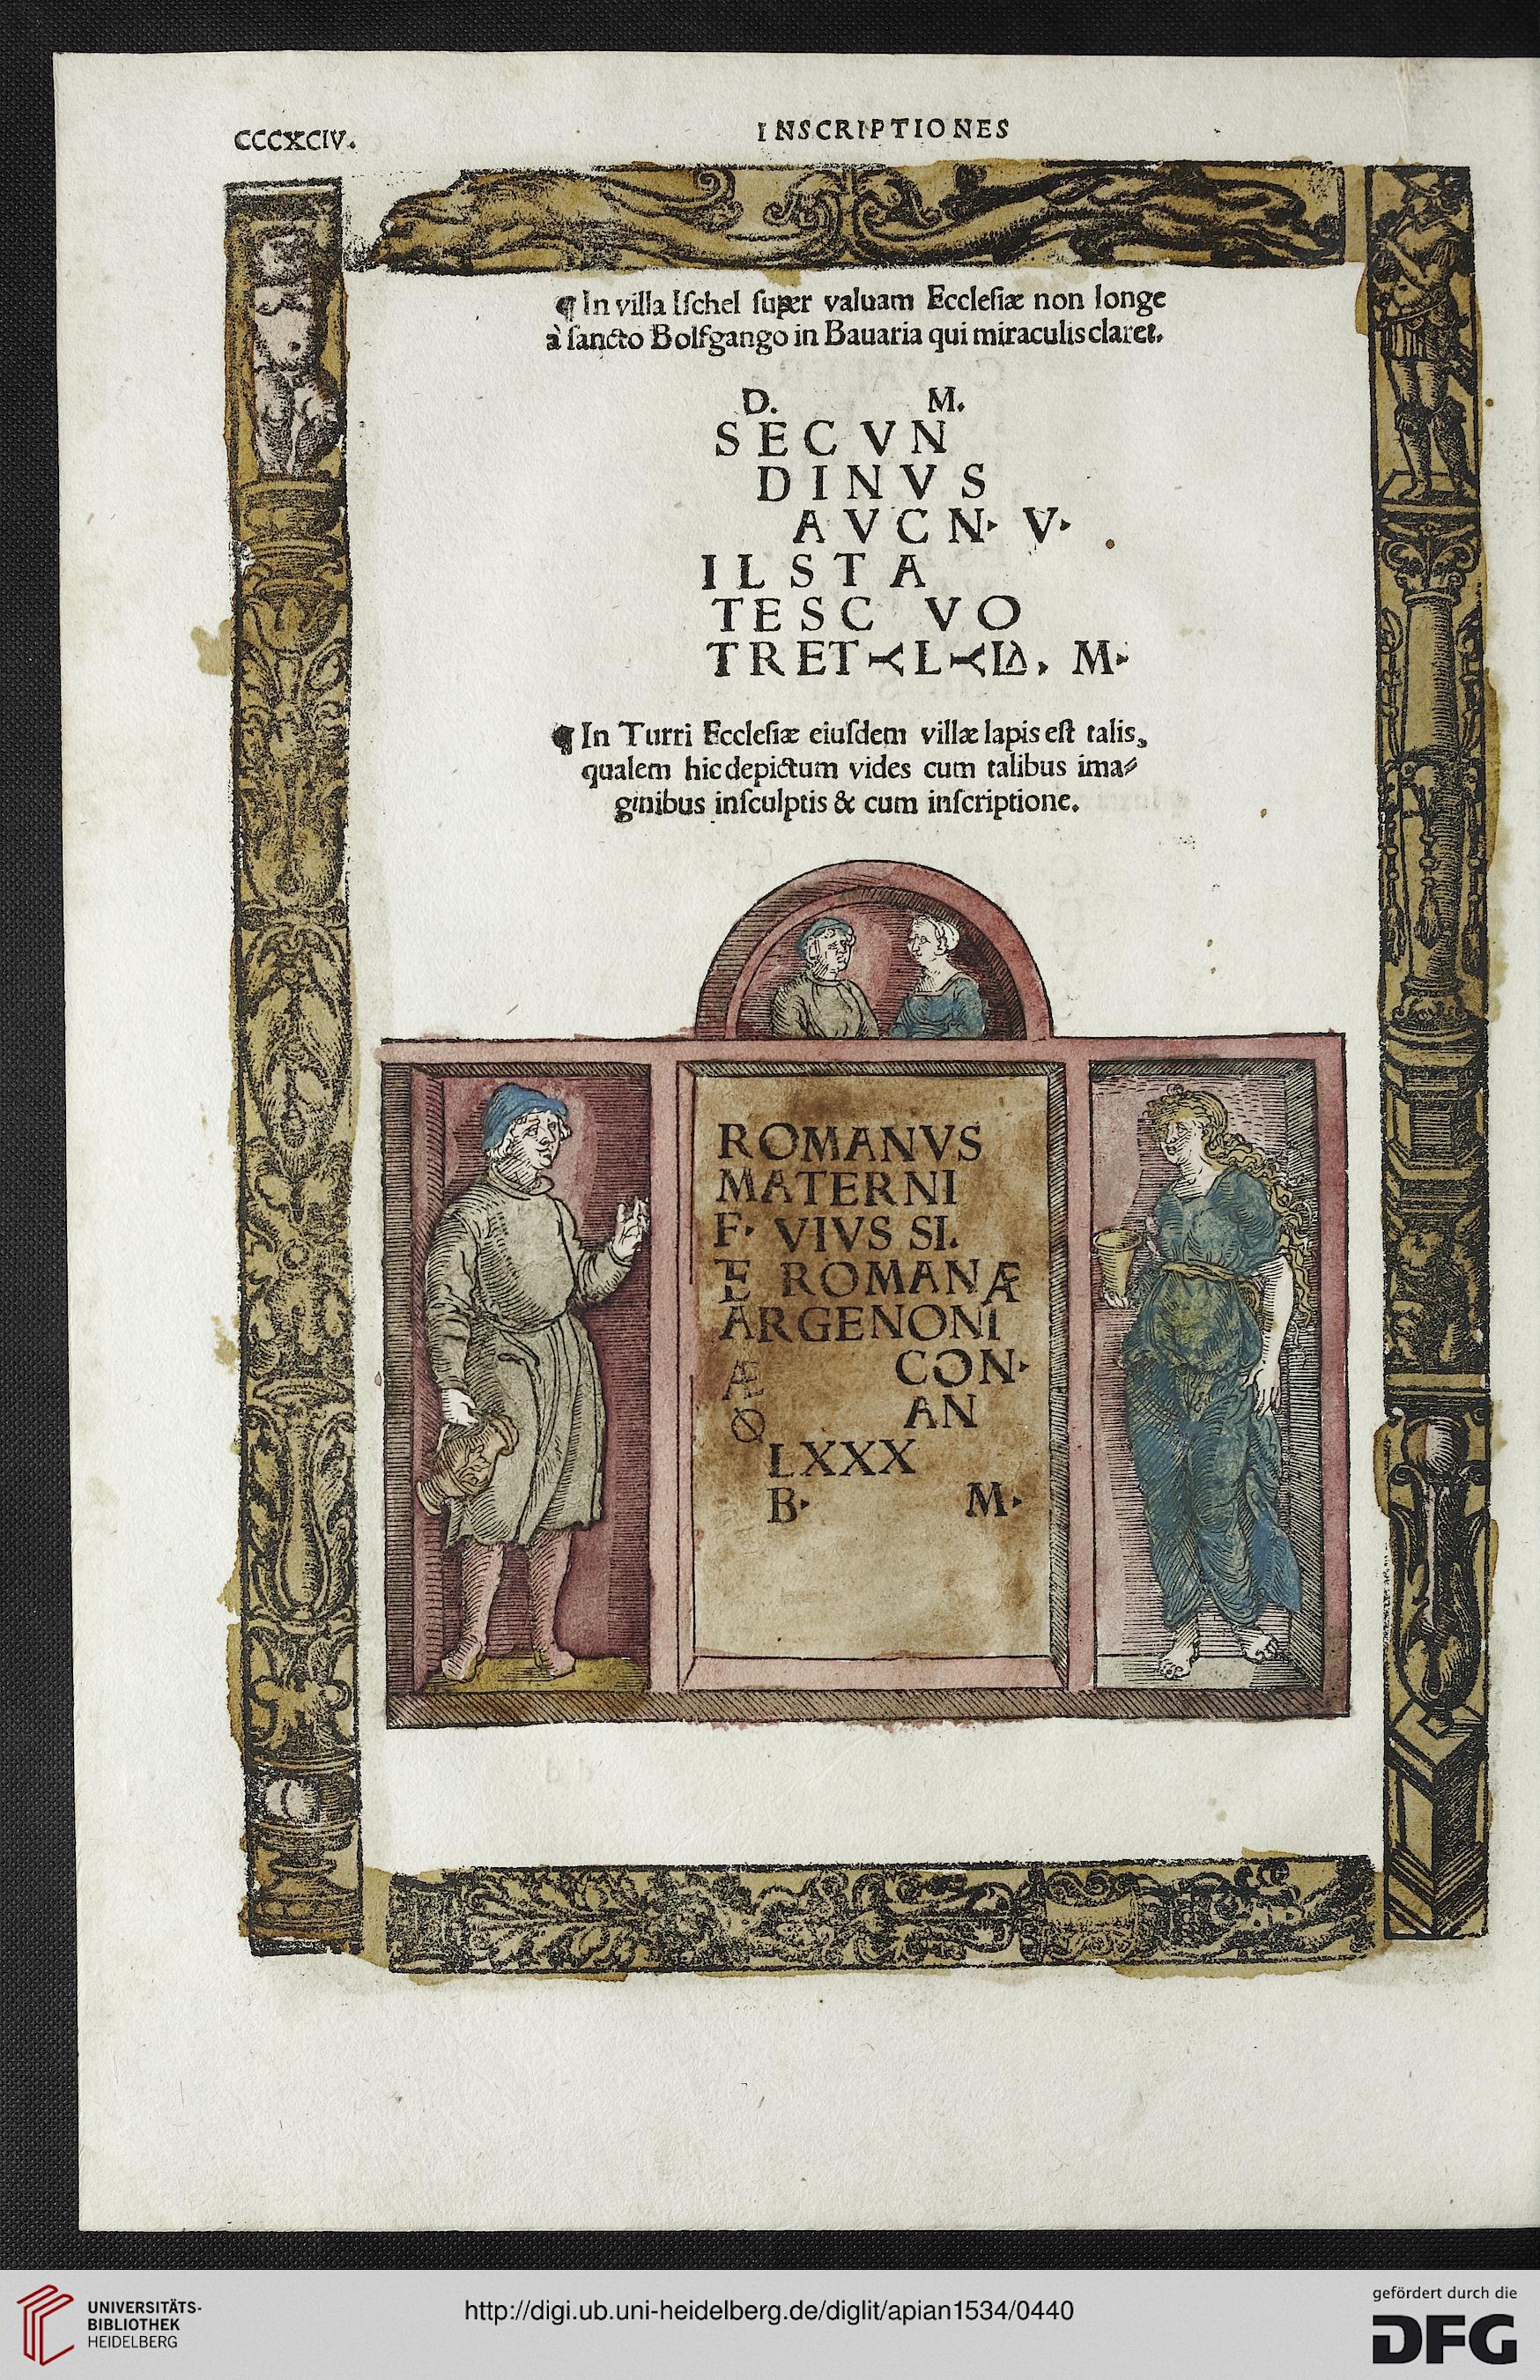 CCCXCIV.
INSCRIPTIONES
¶ In villa Iſchel ſuper valuam Eccleſiæ non longe
à ſancto Bolfgango in Bauaria qui miraculis claret.
D. M.
SECVN
DINVS
AVCN· V·
ILSTA
TESC VO
TRET L M·
¶ In Turri Eccleſiæ eiuſdem villæ lapis eſt talis,
qualem hic depictum vides cum talibus ima⸗
ginibus inſculptis & cum inſcriptione.
ROMANVS
MATERNI
F· VIVS SI.
E ROMANÆ
ARGENONI
Æ CON·
AN
LXXX
B· M·
UNIVERSITÄTS-
BIBLIOTHEK
HEIDELBERG
http://digi.ub.uni-heidelberg.de/diglit/apian1534/0440
gefördert durch die
DFG